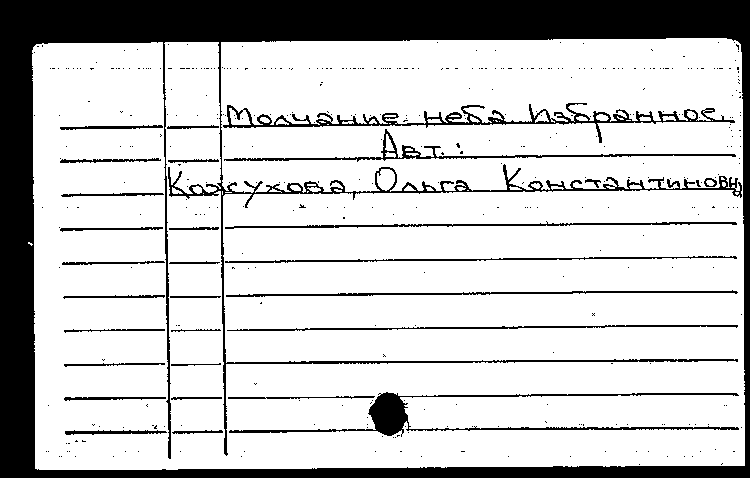 Молчание неба. Избранное.
Авт.:
Кожухова, Ольга Константиновна